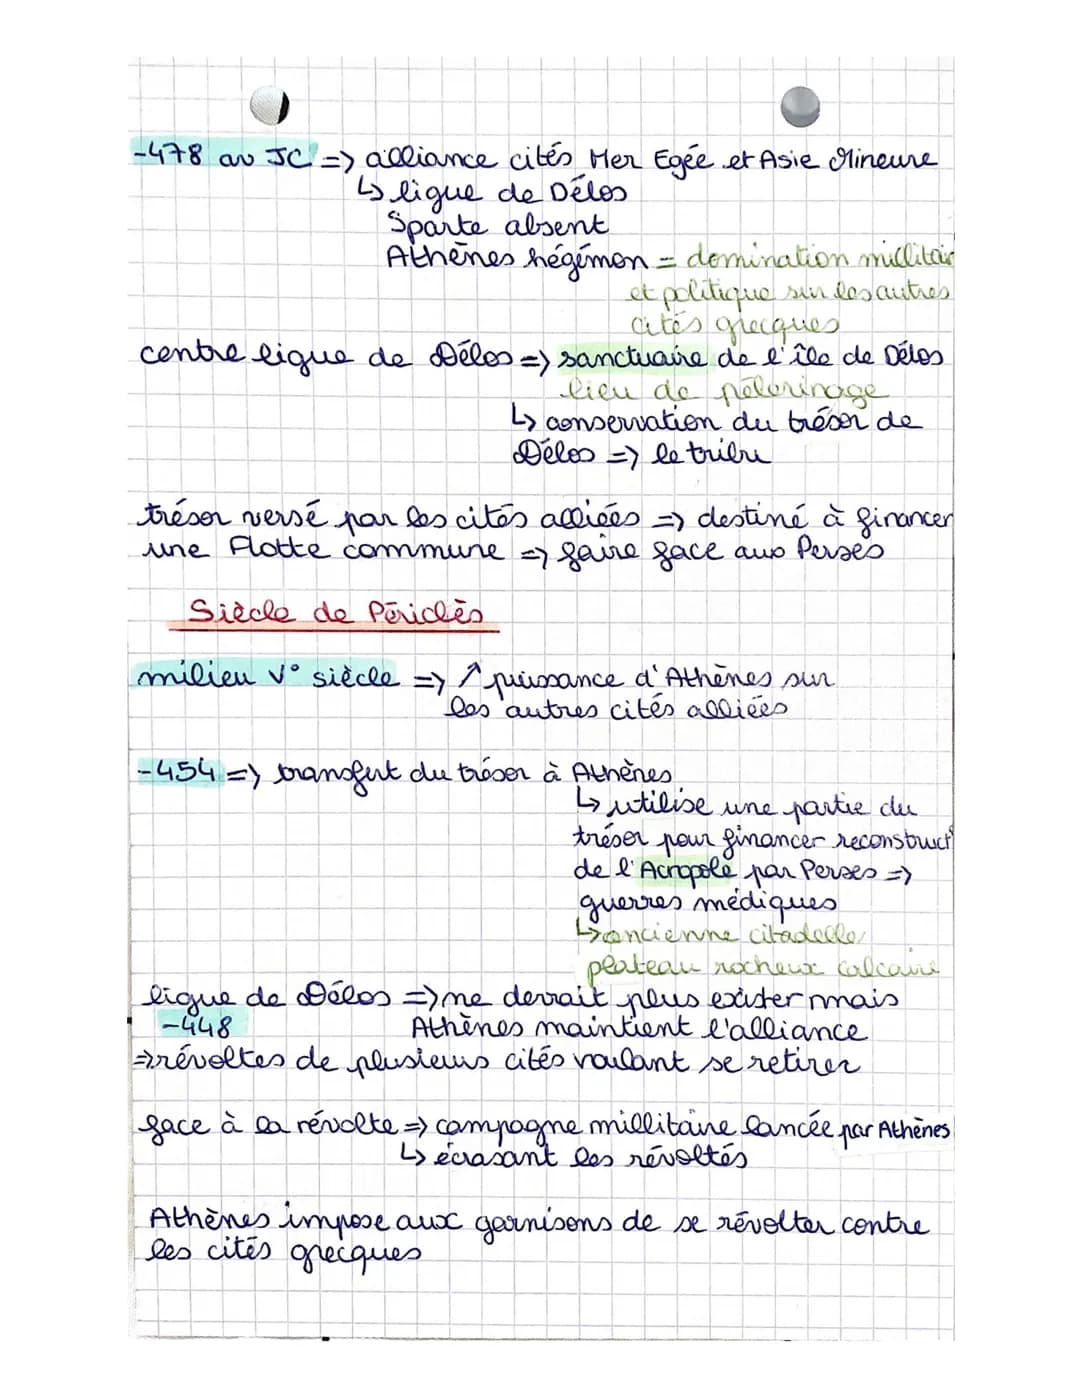 -478 av JC => alliance cités Mer Egée et Asie Mineure
↳ ligue de Délos
Sparte absent
Athènes hégémon = domination millitair
et politique sur les autres
cités grecques
centre ligue de Délos => sanctuaire de l'île de Délos
lieu de pélerinage
↳ conservation du trésor de
Délos => le tribu
trésor versé par les cités alliées => destiné à financer
une flotte commune => faire face aux Perses
Siècle de Périclès
milieu V° siècle => ↗ puissance d'Athènes sur
les autres cités alliées
-454 => transfert du trésor à Athènes
↳ utilise une partie du
trésor pour financer reconstruct°
de l'Acropole par Perses =>
guerres médiques
↳ ancienne citadelle,
plateau rocheux calcaire
ligue de Délos => ne devrait plus exister mais
-448 Athènes maintient l'alliance
=> révoltes de plusieurs cités voulant se retirer
face à la révolte => campagne millitaire lancée par Athènes
↳ écrasant les révoltés
Athènes impose aux garnisons de se révolter contre
les cités grecques